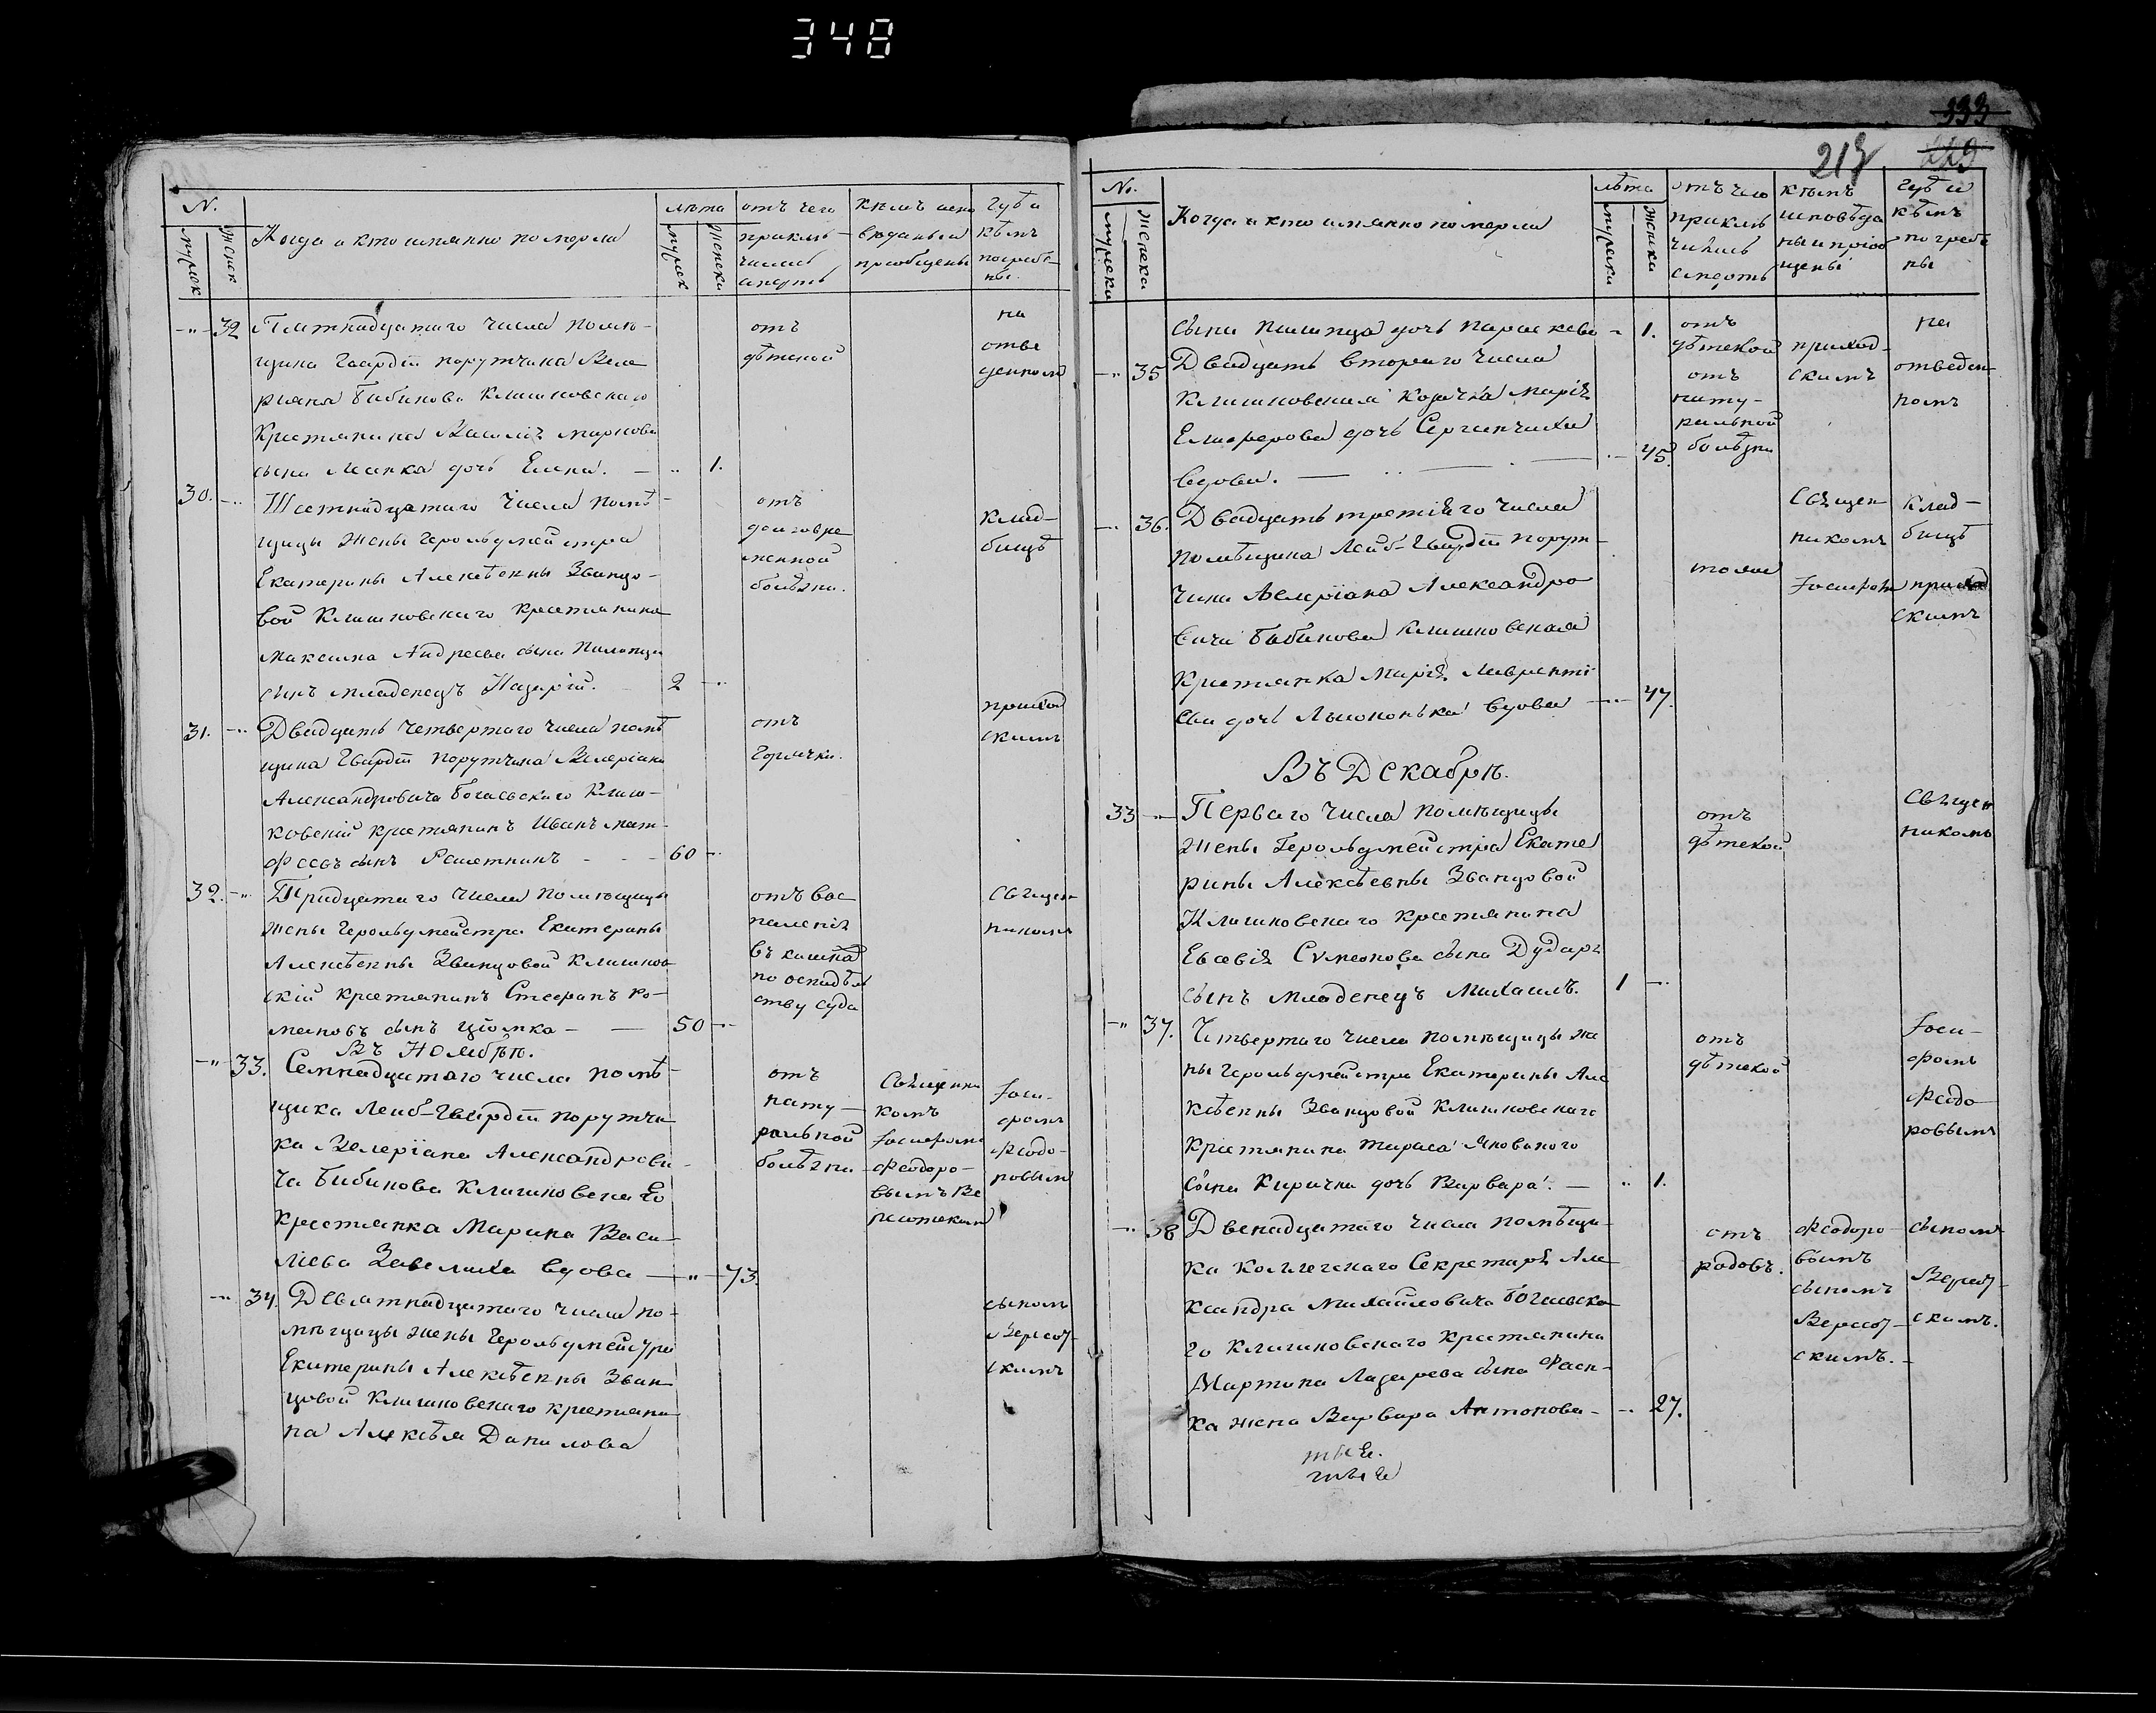 348
N.
мужск
женск
Когда и кто имянно померли
лѣта
мужск
женска
отъ чего
приклю-
чилась
смерть
кѣмъ испо
вѣданы и
приобщены
Гдѣ и
кѣмъ
погребе-
ны.
-"- 32 Пятнадцатаго числа помѣ-
щика Гвардіи порутчика Вале
рияна Бибикова Клишковскаго
Крестянина Василія Маркова
сына дочь Елена. — " 1.
отъ
дѣтской
на
отве
денном
30. -" Шестнадцатаго числа помѣ-
щицы жены Герольдмейстра
Екатерины Алексѣевны Званцо-
вой Клишковскаго крестянина
Максима Андреева сына Пилипца
сынъ младенецъ Назарій. — 2 -"
отъ
долговре
менной
болѣзни.
клад-
бищѣ
31. -" Двадцать четвертаго числа помѣ
щика Гвардіи порутчика Валеріана
Александровича Богаевскаго Клиш-
ковскій крестянинъ Иванъ Мат-
феевъ сынъ Решетникъ - - - 60 -"
отъ
Горячки.
приход
скимъ
32. -" Тридцатаго числа помѣщицы
жены Герольдмейстра Екатерины
Алексѣевны Званцовой Клишков
скій крестянинъ Стефанъ Ро-
мановъ сынъ Цюмка — — 50 -"
отъ вос
паленія
въ
по
ству суда
священ
никомъ
Въ Ноябрѣ.
-" 33. Семнадцатаго числа помѣ-
щика Лейб-Гвардіи порутчи
ка Валеріана Александрови-
ча Бибикова Клишковская
Крестянка Марина Васи-
лиева Завелиха вдова — " — 73.
отъ
нату-
ральной
болѣзни
Священни
комъ
Іосифомъ
Феодоро-
вымъ Ве
ресотским
Іоси-
фомъ
Феодо-
ровым
-" 34. Девятнадцатаго числа по-
мѣщицы жены Герольдмейстра
Екатерины Алексѣевны Зван
цовой Клишковскаго крестяни
на Алексѣя Данилова
сыномъ
Вересот-
скимъ
333
213
229
No.
мужска
женска
Когда и кто имянно померли
лѣта
мужска
женска
отъ чего
приклю
чилась
смерть
кѣмъ
исповѣда
ны и приоб
щены
Гдѣ и
кѣмъ
погребе
ны
сына Пилипца дочь Параскева - 1.
отъ
дѣтской
на
-" 35 Двадцать втораго числа
Клишковская козачка Марія
Елиферова дочь Сергиенчиха
вдова. — .. — .. — 45.
отъ
нату-
ральной
болѣзни
приход-
скимъ
отведен-
номъ
-" 36. Двадцать третіяго числа
помѣщика Лейб-Гвардіи порут-
чика Валеріана Александро
вича Бибикова Клишковская
Крестянка Марія Лаврентіе
ва дочь вдова —"— 47.
тояж
Священ
никомъ
Іосифом
клад-
бищѣ
приход
скимъ
Въ Декабрѣ.
33 -" Перваго числа помѣщицы
жены Герольдмейстра Екате
рины Алексѣевны Званцовой
Клишковскаго крестянина
Евсевія Сѵмеонова сына Дударя
сынъ младенецъ Михаилъ. 1 -"
отъ
дѣтской
Священ
никомъ
-" 37. Четвертаго числа помѣщицы же
ны Герольдмейстра Екатерины Але
ксѣевны Званцовой Клишковскаго
Крестянина Тараса
сына Кирички дочь Варвара. — " 1.
отъ
дѣтской
Іоси-
фомъ
Феодо-
ровымъ
-" 38 Двенадцатаго числа помѣщи-
ка коллегскаго Секретаря Але
ксандра Михайловича Богаевска
го Клишковскаго крестянина
Мартина Лазарева сына
жена Варвара Антонова — " 27.
отъ
родовъ.
Феодоро-
вымъ
сыномъ
Вересот-
скимъ.
сыномъ
Вересот-
скимъ.